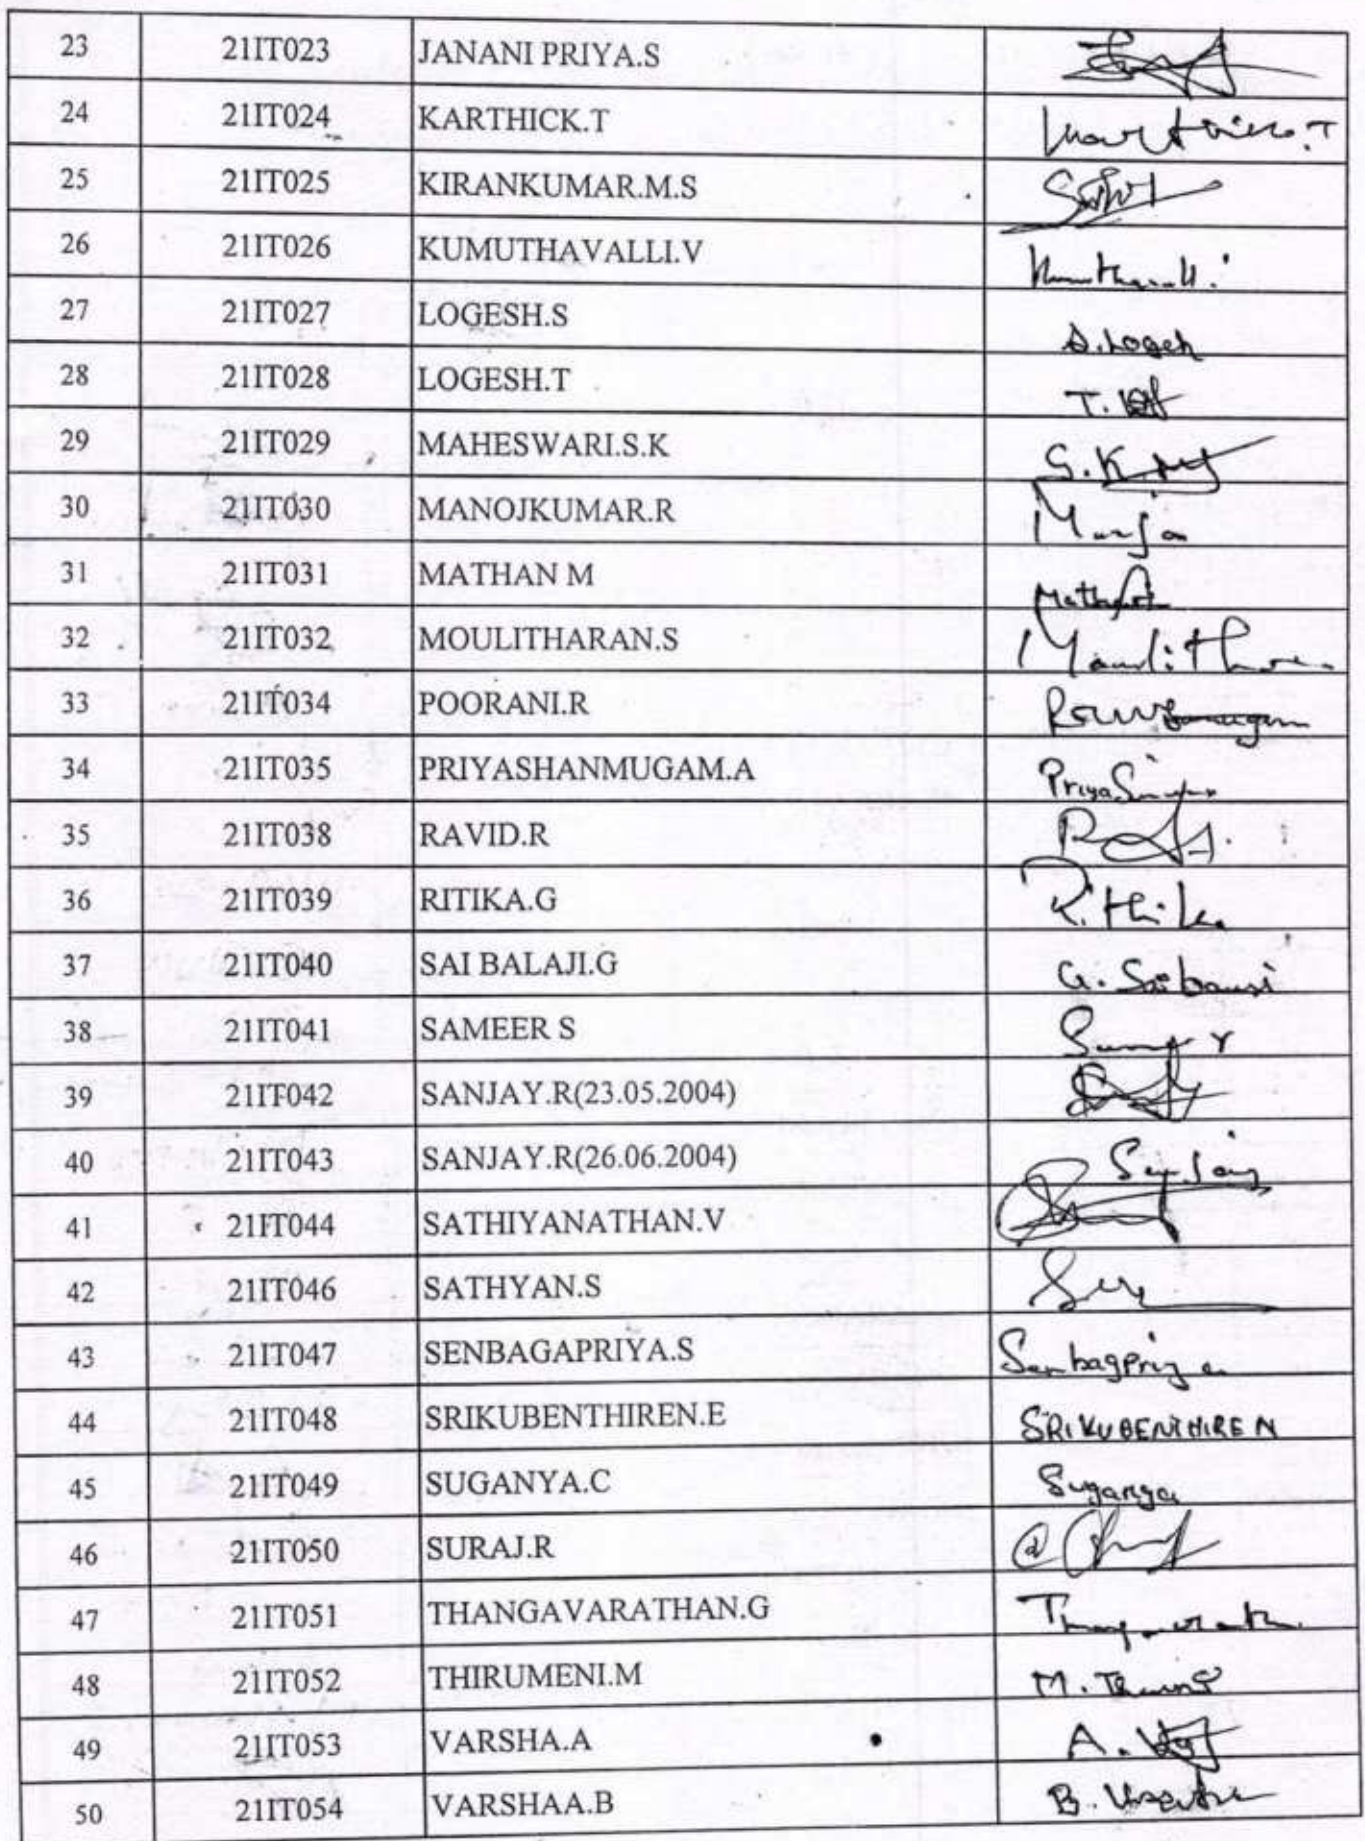 23 21IT023 JANANI PRIYA.S
24 21IT024 KARTHICK.T Karthick.T
25 21IT025 KIRANKUMAR.M.S
26 21IT026 KUMUTHAVALLI.V Kumuthavalli
27 21IT027 LOGESH.S S.Logesh
28 21IT028 LOGESH.T T.
29 21IT029 MAHESWARI.S.K S.K
30 21IT030 MANOJKUMAR.R
31 21IT031 MATHAN M
32 21IT032 MOULITHARAN.S
33 21IT034 POORANI.R
34 21IT035 PRIYASHANMUGAM.A
35 21IT038 RAVID.R
36 21IT039 RITIKA.G Rithika
37 21IT040 SAI BALAJI.G G.
38 21IT041 SAMEER S
39 21IT042 SANJAY.R(23.05.2004)
40 21IT043 SANJAY.R(26.06.2004)
41 21IT044 SATHIYANATHAN.V
42 21IT046 SATHYAN.S
43 21IT047 SENBAGAPRIYA.S Senbagpriya
44 21IT048 SRIKUBENTHIREN.E SRIKUBENTHIREN
45 21IT049 SUGANYA.C Suganya
46 21IT050 SURAJ.R
47 21IT051 THANGAVARATHAN.G
48 21IT052 THIRUMENI.M M.
49 21IT053 VARSHA.A A.
50 21IT054 VARSHAA.B B.